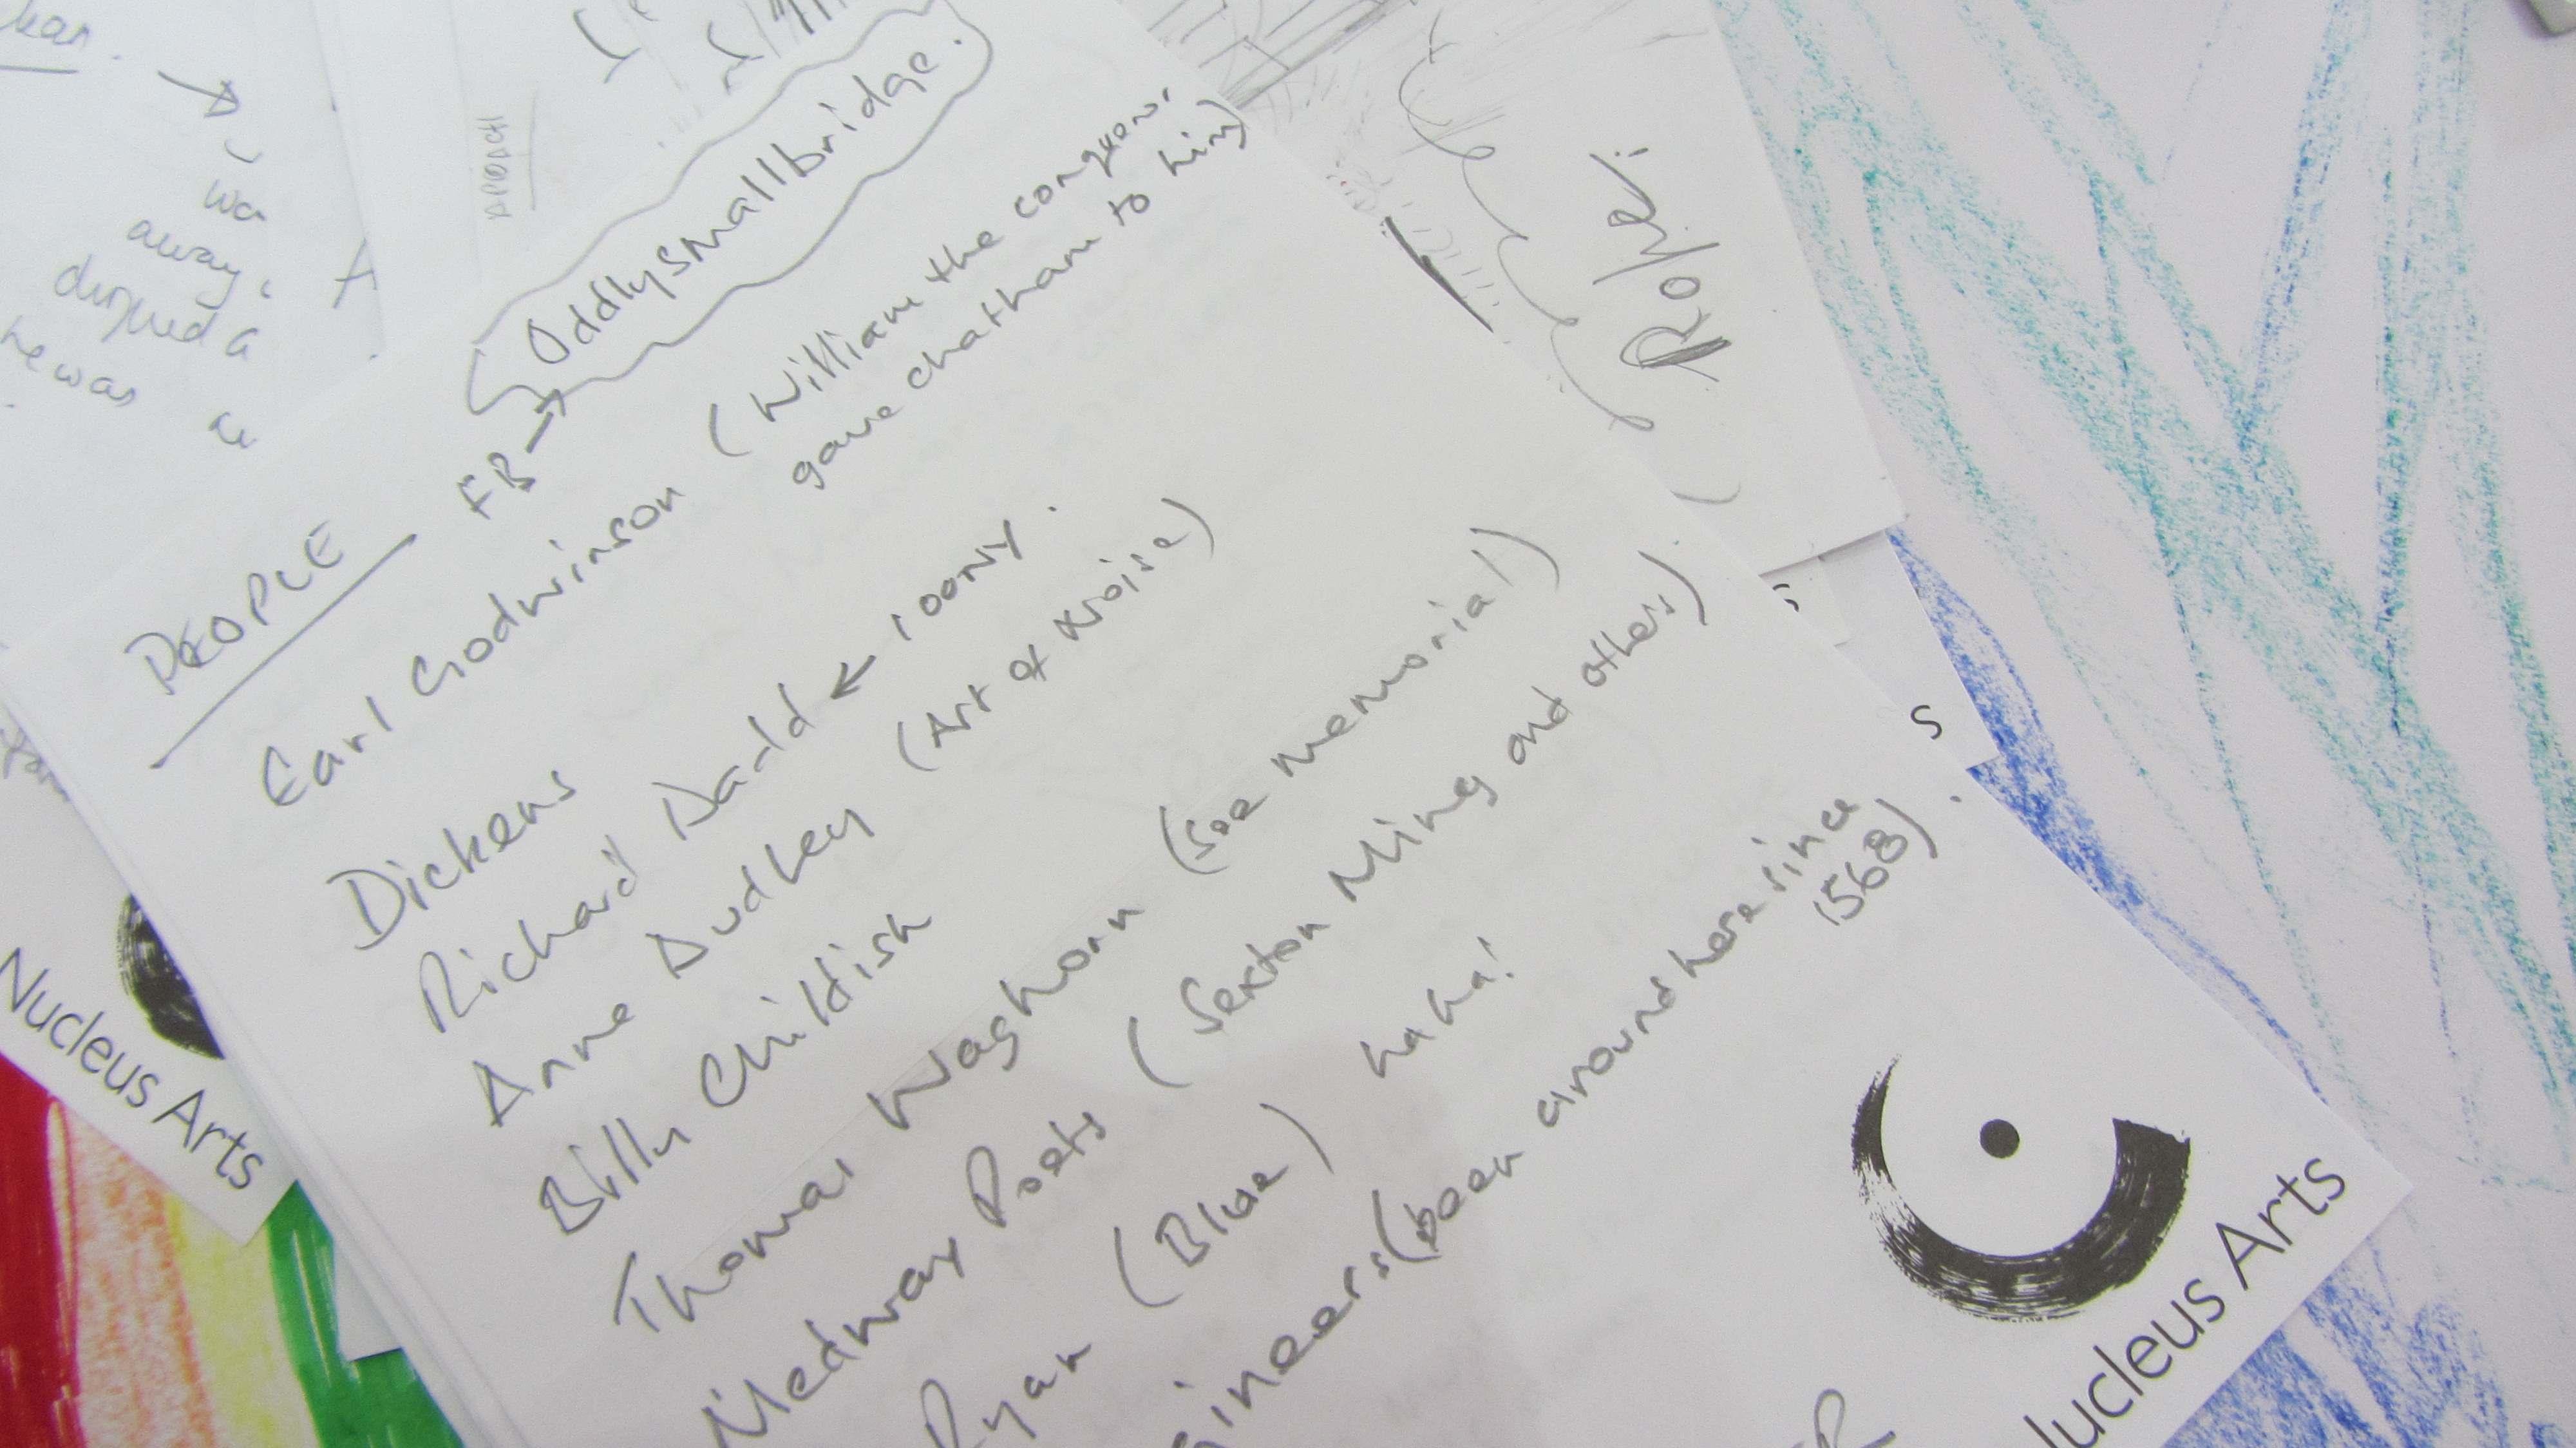 PEOPLE
FB → Oddlysmallbridge.
Earl Godwinson (William the conqueror,
gave chatham to him)
Dickens
Richard Dadd ← loony.
Anne Dudley (Art of Noise)
Billy Childish
Thomas Waghorn (see memorial)
Medway Poets (Sexton Ming and others)
Ryan (Blue) haha!
gineers (been around here since
1568).
Nucleus Arts
ucleus Arts
Nucleus Arts
Rope.
away,
he was
S
R